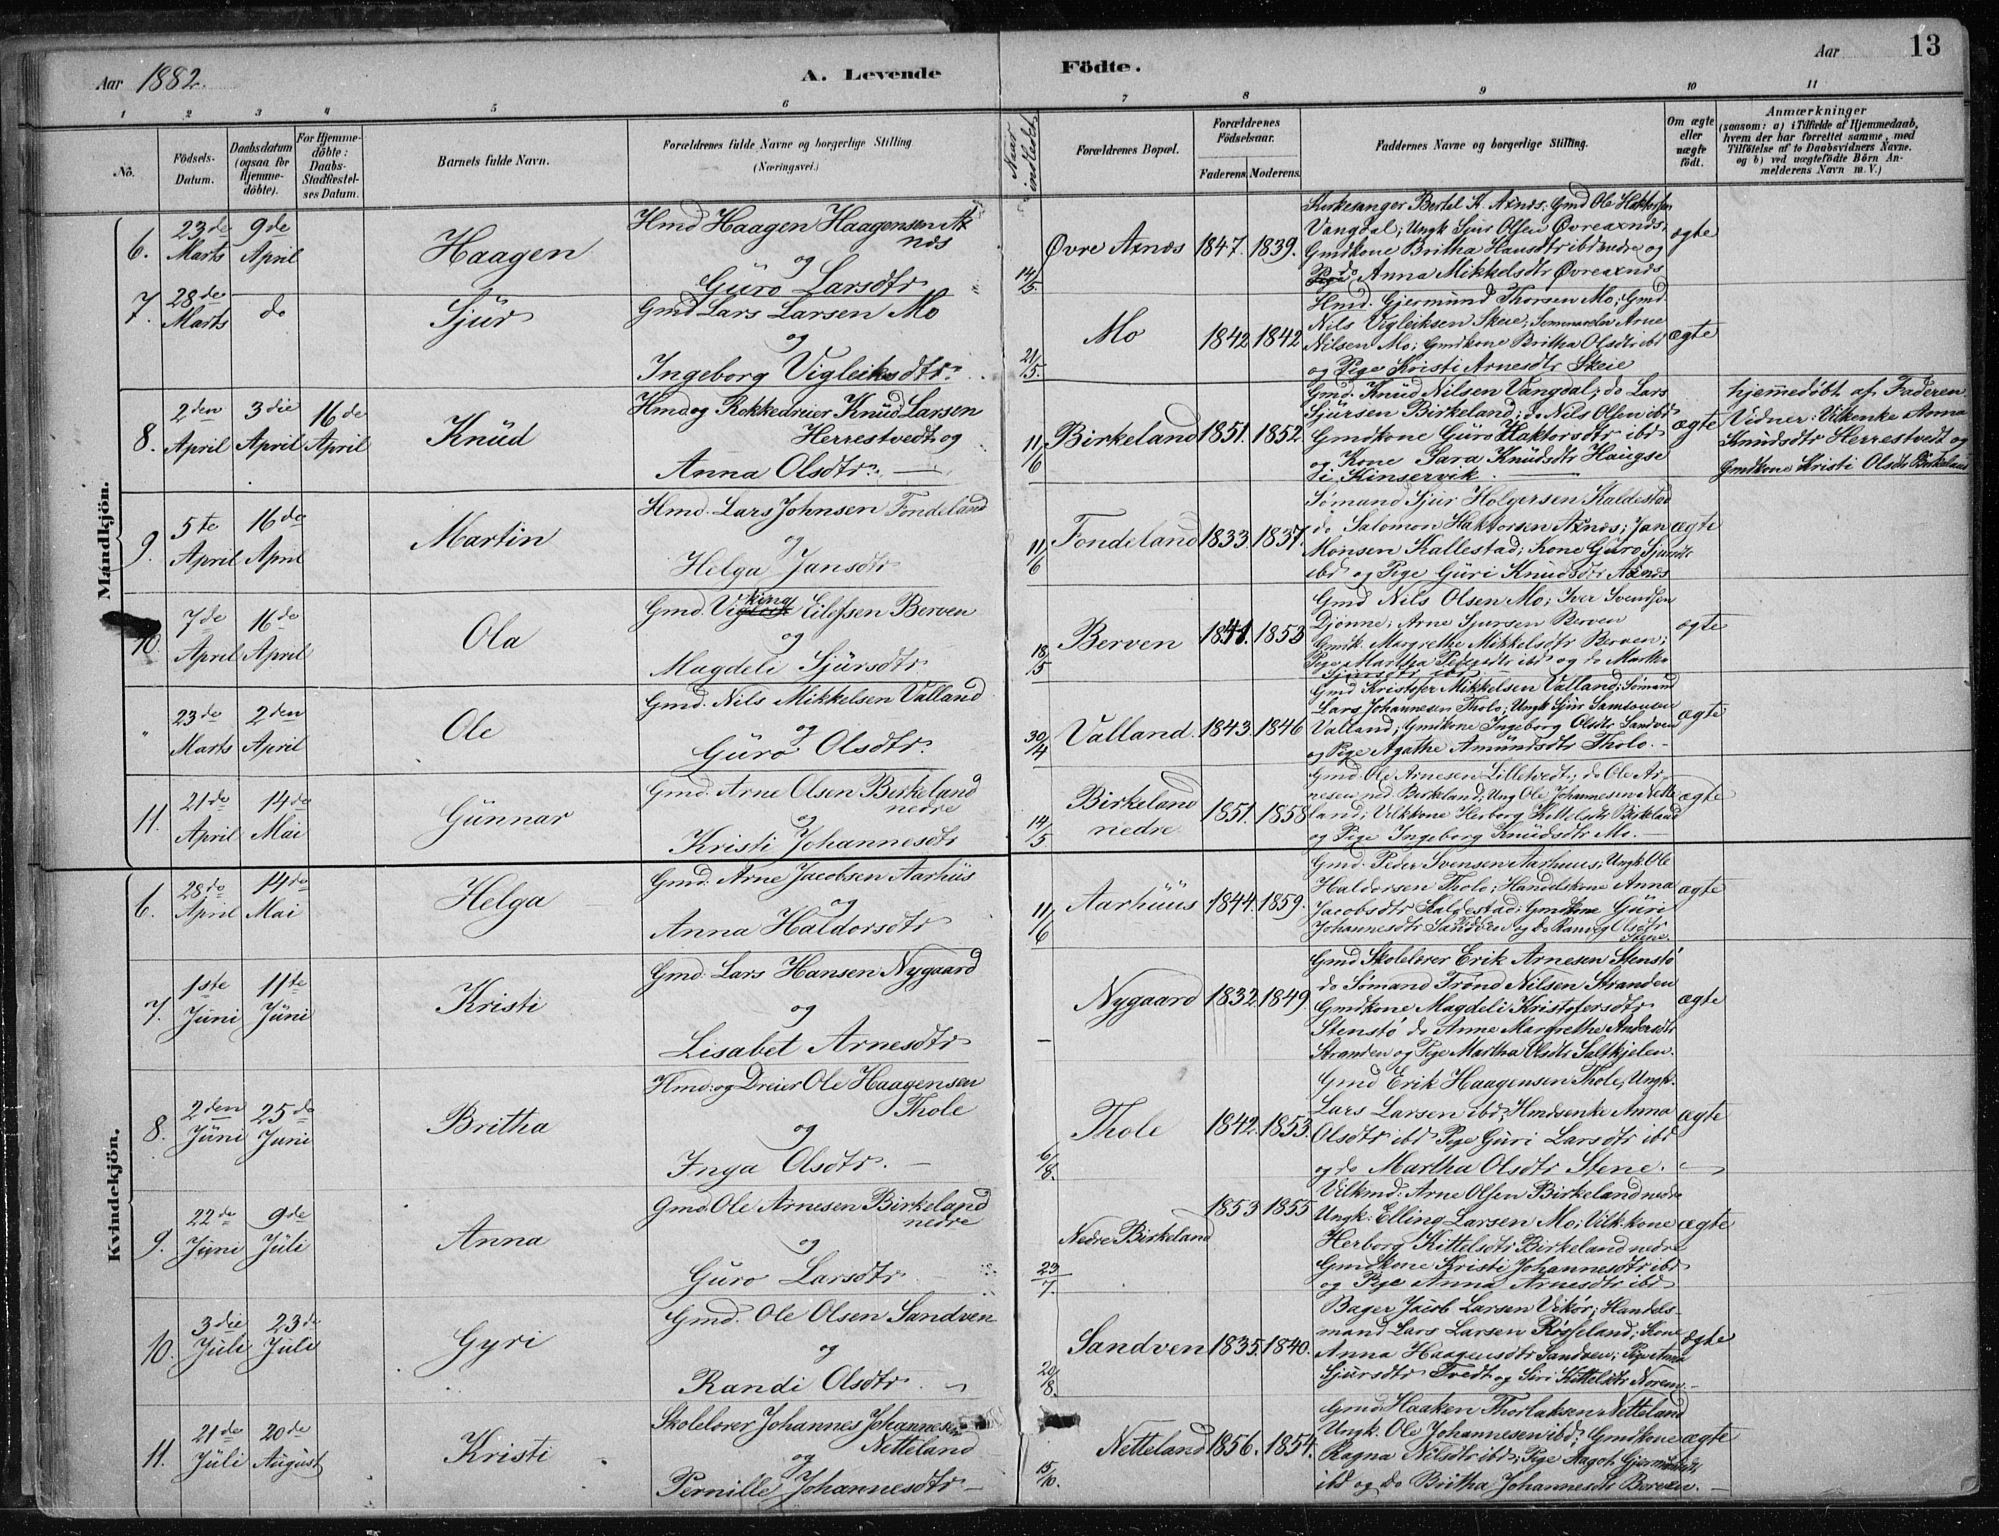 Aar 1882. A. Levende Födte. Aar 13
1 2 3 4 5 6 7 8 9 10 11
No.
Födsels-Datum.
Daabsdatum (ogsaa for Hjemme-döbte).
For Hjemme-döbte: Daabs-Stadfæstel-ses Datum.
Barnets fulde Navn.
Forældrenes fulde Navne og borgerlige Stilling (Næringsvei.)
Naar indledet
Forældrenes Bopæl.
Forældrenes Födselsaar.
Faderens. Moderens.
Faddernes Navne og borgerlige Stilling.
Om ægte eller uægte födt.
Anmærkninger
(saasom: a) i Tilfælde af Hjemmedaab, hvem der har forrettet samme, med Tilföielse af to Daabsvidners Navne. og b) ved uægtefödte Börn An-melderens Navn m. V.)
Mandkjön.
6. 23de Marts 9de April
Haagen
Hmd Haagen Haagensen Ax
næs
og
Guro Larsdtr
14/5
Øvre Axnæs 1847. 1839.
Kirkesanger Bertel K. Axnæs, Gmd Ole Haktorsen
Vangdal; Ungk Sjur Olsen Øvreaxnæs,
Gmdkone Britha Hansdtr ibd nedre og
Pige do Anna Mikkelsdtr Øvreaxnæs
ægte
7. 28de Marts do
Sjur
Gmd Lars Larsen Mo
og
Ingeborg Vigleiksdtr.
21/5.
Mo 1842 1842
Hmd. Gjermund Thorsen Mo; Gmd.
Nils Vigleiksen Skeie; Arne
Nilsen Mo; Gmdkone Britha Olsdtr ibd
og Pige Kristi Arnesdtr Skeie
ægte
8. 2den April 3die April 16de April
Knud
Hmd og Rokkedreier Knud Larsen
Herrestvedt og
Anna Olsdtr.
11/6
Birkeland 1851. 1852
Gmd. Knud Nilsen Vangdal; do Lars
Sjursen Birkeland; do Nils Olsen ibd
Gmdkone Guro Haktorsdtr ibd
og Kone Sara Knudsdtr Haugse
i Kinservik.
ægte
hjemmedøbt af Faderen
Vidner: Vilkenke Anna
Knudsdtr Herrestvedt og
Gmdkone Kristi Olsdtr Birkeland
9. 5te April 16de April
Martin
Hmd. Lars Johnsen Fondeland
og
Helga Jansdtr
11/6
Fondeland 1833. 1837.
Sømand Sjur Holgersen Kaldestad
do Salomon Haktorsen Axnæs; Jan
Monsen Kallestad; Kone Guro Sjursdtr
ibd og Pige Guri Knudsdtr Axnæs
ægte
10. 7de April 16de April
Ola
Gmd. Viking Eilefsen Berven
og
Magdeli Sjursdtr
18/5
Berven 1841. 1853
Gmd Nils Olsen Mo; Iver Svendsen
Djønne; Arne Sjursen Berven
Gmk. Margrethe Mikkelsdtr Berven;
Pige Martha Pedersdtr ibd og do Martha
Sjursdtr ibd
ægte
" 23de Marts 2den April
Ole
Gmd. Nils Mikkelsen Valland
og
Guro Olsdtr.
30/4
Valland. 1843. 1846
Gmd Kristofer Mikkelsen Valland; Sømand
Lars Johannesen Tholo; Ungk Sjur Samsonsen
Valland; Gmdkone Ingeborg Olsdtr Sandven
og Pige Agathe Amundsdtr Tholo.
ægte
11. 21de April 14de Mai
Gunnar
Gmd. Arne Olsen Birkeland
nedre
og
Kristi Johannesdtr
14/5
Birkeland nedre 1851. 1858
Gmd. Ole Arnesen Lilletvedt; do Ole Ar-
nesen ned. Birkeland; Ung Ole Johannesen Nette
land; Vilkkone Herborg Kittelsdtr Birkeland
og Pige Ingeborg Knudsdtr Mo.
ægte
Kvindekjön.
6. 28de April 14de Mai
Helga
Gmd. Arne Jacobsen Aarhuus
og
Anna Haldorsdtr
11/6
Aarhuus 1844. 1859.
Gmd. Peder Svensen Aarhuus; Ungk. Ole
Haldorsen Tholo; Handelskone Anna
Jacobsdtr Kaldestad; Gmdkone Guri
Johannesdtr Sandven og do Ranveg Olsdtr
Stene.
ægte
7. 1ste Juni 11te Juni
Kristi
Gmd. Lars Hansen Nygaard
og
Lisabet Arnesdtr
–
Nygaard 1832 1849.
Gmd Skolelærer Erik Arnesen Stenstø
do Sømand Trond Nilsen Stranden
Gmdkone Magdeli Kristofersdtr
Stenstø do Anne Margrethe Andersdtr
Stranden og Pige Martha Olsdtr Saltkjelen.
ægte
8. 2den Juni 25de Juni
Britha
Hmd: og Dreier Ole Haagensen
Thole
og
Inga Olsdtr.
6/8.
Thole 1842. 1853.
Gmd Erik Haagensen Thole; Ungk.
Lars Larsen ibd; Hmdsenke Anna
Olsdtr ibd Pige Guri Larsdtr ibd
og do Martha Olsdtr Stene.
ægte
9. 22de Juni 9de Juli
Anna
Gmd Ole Arnesen Birkeland
nedre
og
Guro Larsdtr.
23/7.
Nedre Birkeland 1853 1855
Vilkmd: Arne Olsen Birkeland nedre
Ungk: Elling Larsen Mo; Vilk.kone
Herborg Kittelsdtr Birkeland nedre
Gmdkone Kristi Johannesdtr ibd
og Pige Anna Arnesdtr ibd
ægte
10. 3die Juli 23de Juli
Gyri
Gmd. Ole Olsen Sandven
og
Randi Olsdtr.
20/8.
Sandven 1835. 1840.
Bager Jacob Larsen Vikør; Handels-
mand Lars Larsen Røsseland; Kone
Anna Haagensdtr Sandven; Pige Anna
Sjursdtr Tvedt og Siri Kittelsdtr Norem.
ægte
11. 21de Juli 20de August
Kristi
Skolelærer Johannes Johannesen
Netteland
og
Pernille Johannesdtr
15/10.
Netteland 1856. 1854.
Gmd Haaken Thorlaksen Netteland
Ungk. Ole Johannesen ibd; Gmdkone
Ragna Nilsdtr ibd; Pige Aagot Gjermundsdtr
ibd og do Britha Johannesdtr Berven.
ægte